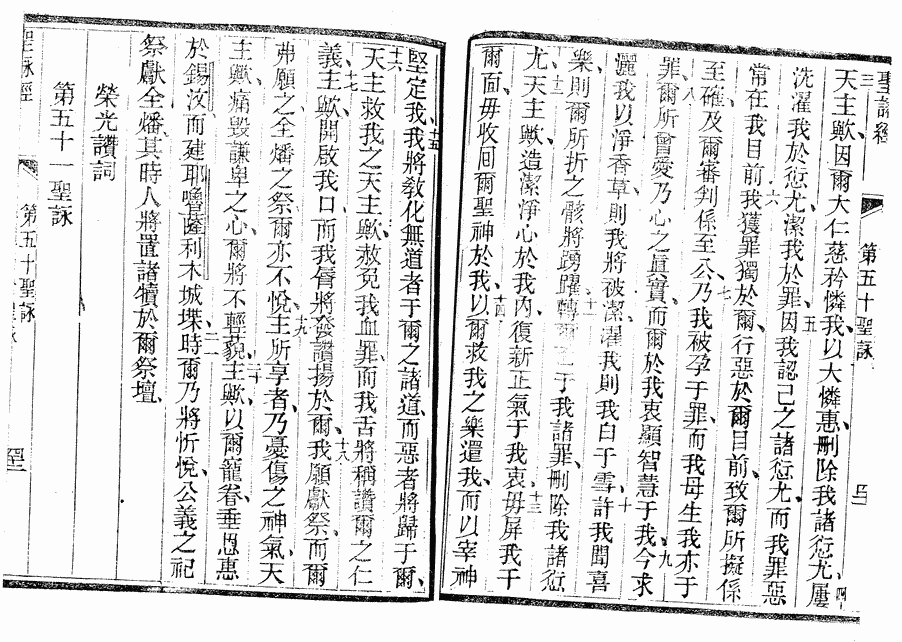 聖詠經 第五十聖詠
三天主歟、因爾大仁慈矜憐我、以大憐惠、刪除我諸愆尤、四屢
洗濯我於愆尤、潔我於罪、五因我認己之諸愆尤、而我罪惡
常在我目前、六我獲罪獨於爾、行惡於爾目前、致爾所擬係
至確、及爾審判係至公、七乃我被孕于罪、而我母生我亦于
罪、八爾所曾愛乃心之眞實、而爾於我衷顯智慧于我、九今求
灑我以淨香草、則我將被潔、濯我則我白于雪、十許我聞喜
樂、則爾所折之骸將踴躍、十一轉爾面于我諸罪、刪除我諸愆
尤、十二天主歟、造潔淨心於我內、復新正氣于我衷、十三毋屏我于
爾面、毋收回爾聖神於我、十四以爾救我之樂還我、而以宰神
堅定我、十五我將敎化無道者于爾之諸道、而惡者將歸于爾、
十六天主救我之天主歟、赦免我血罪、而我舌將稱讚爾之仁
義、十七主歟、開啟我口、而我脣將發讚揚於爾、十八我願獻祭、而爾
弗願之、全燔之祭爾亦不悅、十九主所享者、乃憂傷之神氣、天
主歟、痛毀謙卑之心、爾將不輕藐、二十主歟、以爾寵眷、垂恩惠
於錫汝、而建耶嚕薩利木城堞、二一時爾乃將忻悅、公義之祀
祭獻全燔、其時人將置諸犢於爾祭壇、
榮光讚詞
第五十一聖詠
聖詠經 第五十聖詠